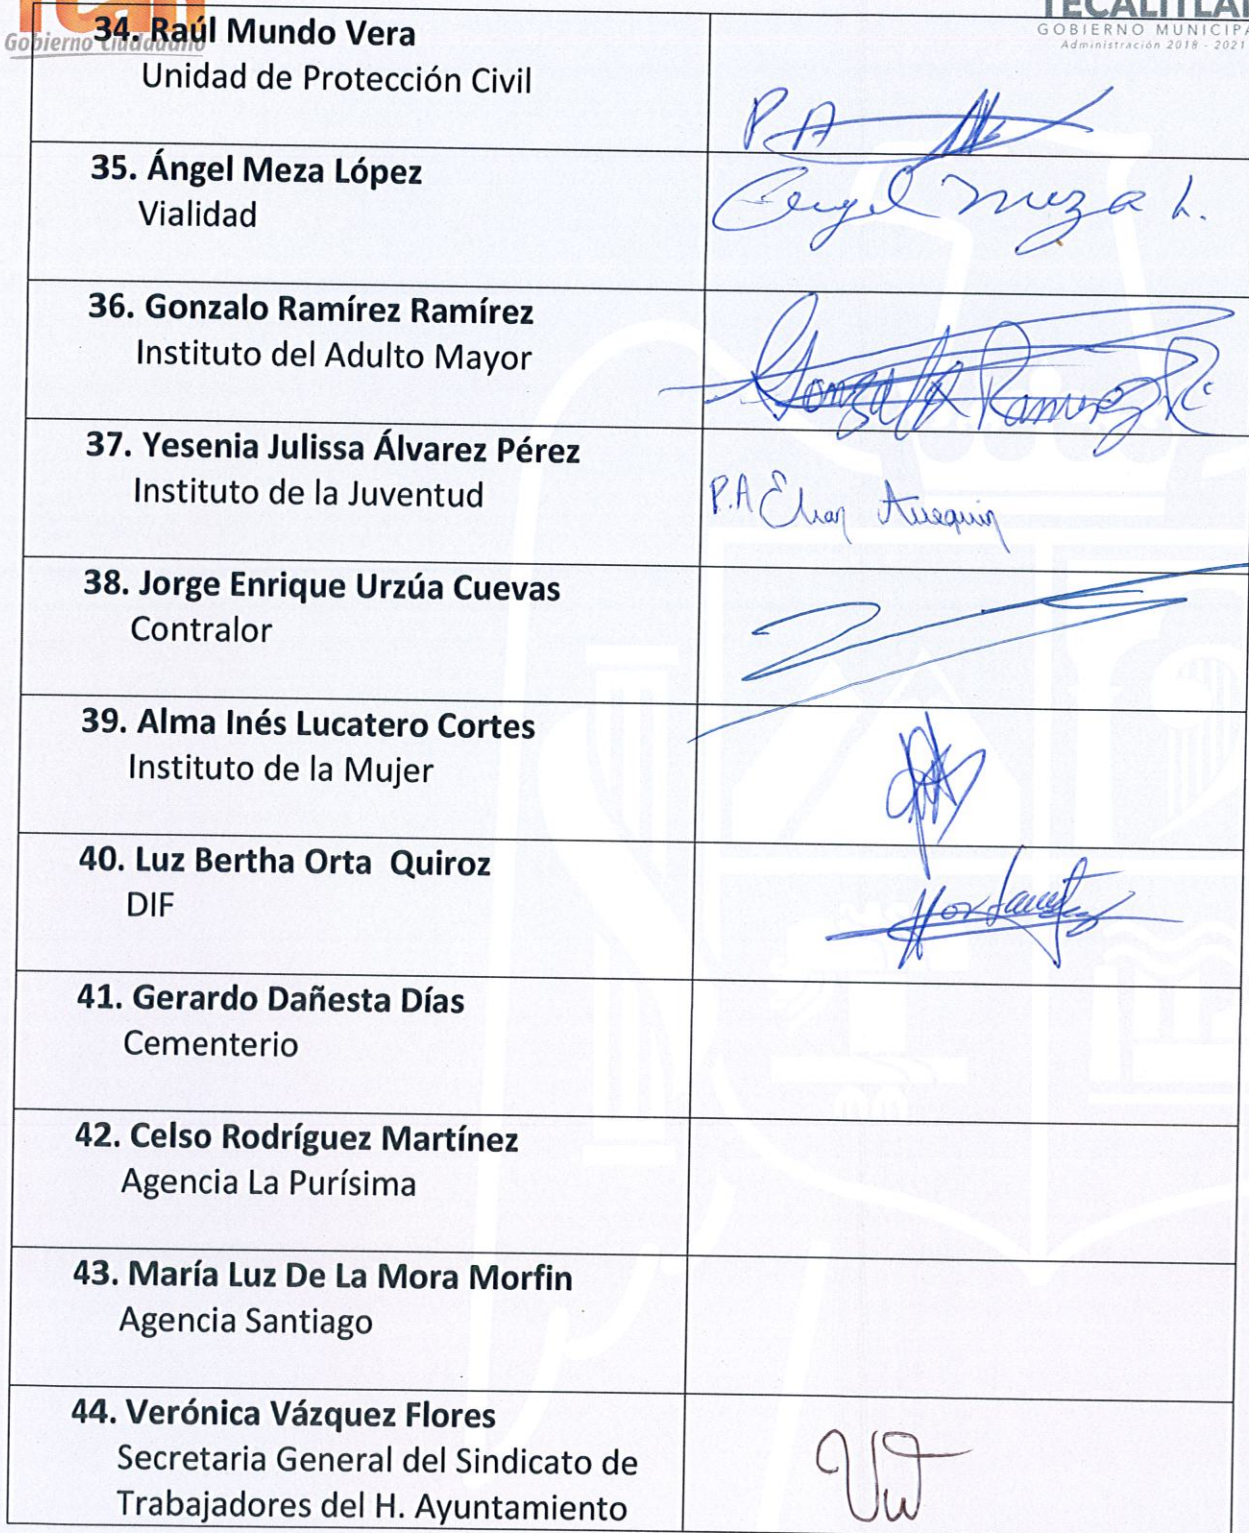 Gobierno Ciudadano
TECALITLAN
GOBIERNO MUNICIPAL
Administración 2018 - 2021
34. Raúl Mundo Vera
Unidad de Protección Civil
P. A
35. Ángel Meza López
Vialidad
Angel Meza L.
36. Gonzalo Ramírez Ramírez
Instituto del Adulto Mayor
Gonzalo Ramirez R.
37. Yesenia Julissa Álvarez Pérez
Instituto de la Juventud
P.A
38. Jorge Enrique Urzúa Cuevas
Contralor
39. Alma Inés Lucatero Cortes
Instituto de la Mujer
40. Luz Bertha Orta Quiroz
DIF
41. Gerardo Dañesta Días
Cementerio
42. Celso Rodríguez Martínez
Agencia La Purísima
43. María Luz De La Mora Morfin
Agencia Santiago
44. Verónica Vázquez Flores
Secretaria General del Sindicato de
Trabajadores del H. Ayuntamiento